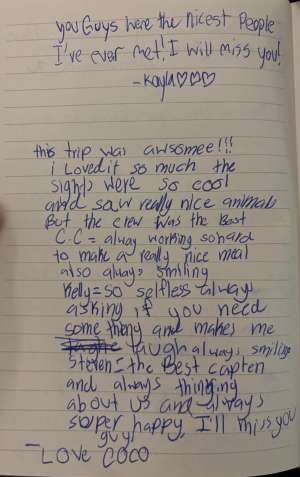 you Guys were the nicest People
I've ever met! I will miss you!
-Kayla♡♡♡
this trip was awsomee!!!
i Loved it so much the
sights were so cool
and saw really nice animals
But the crew was the Best
C.C = alway working so hard
to make a really nice meal
also always smiling
Kelly = so selfless always
asking if you need
some theng and makes me
laugh always smiling
Steven = the Best capten
and always thinking
about us and always
super happy I'll miss you
guys
- LOVE COCO